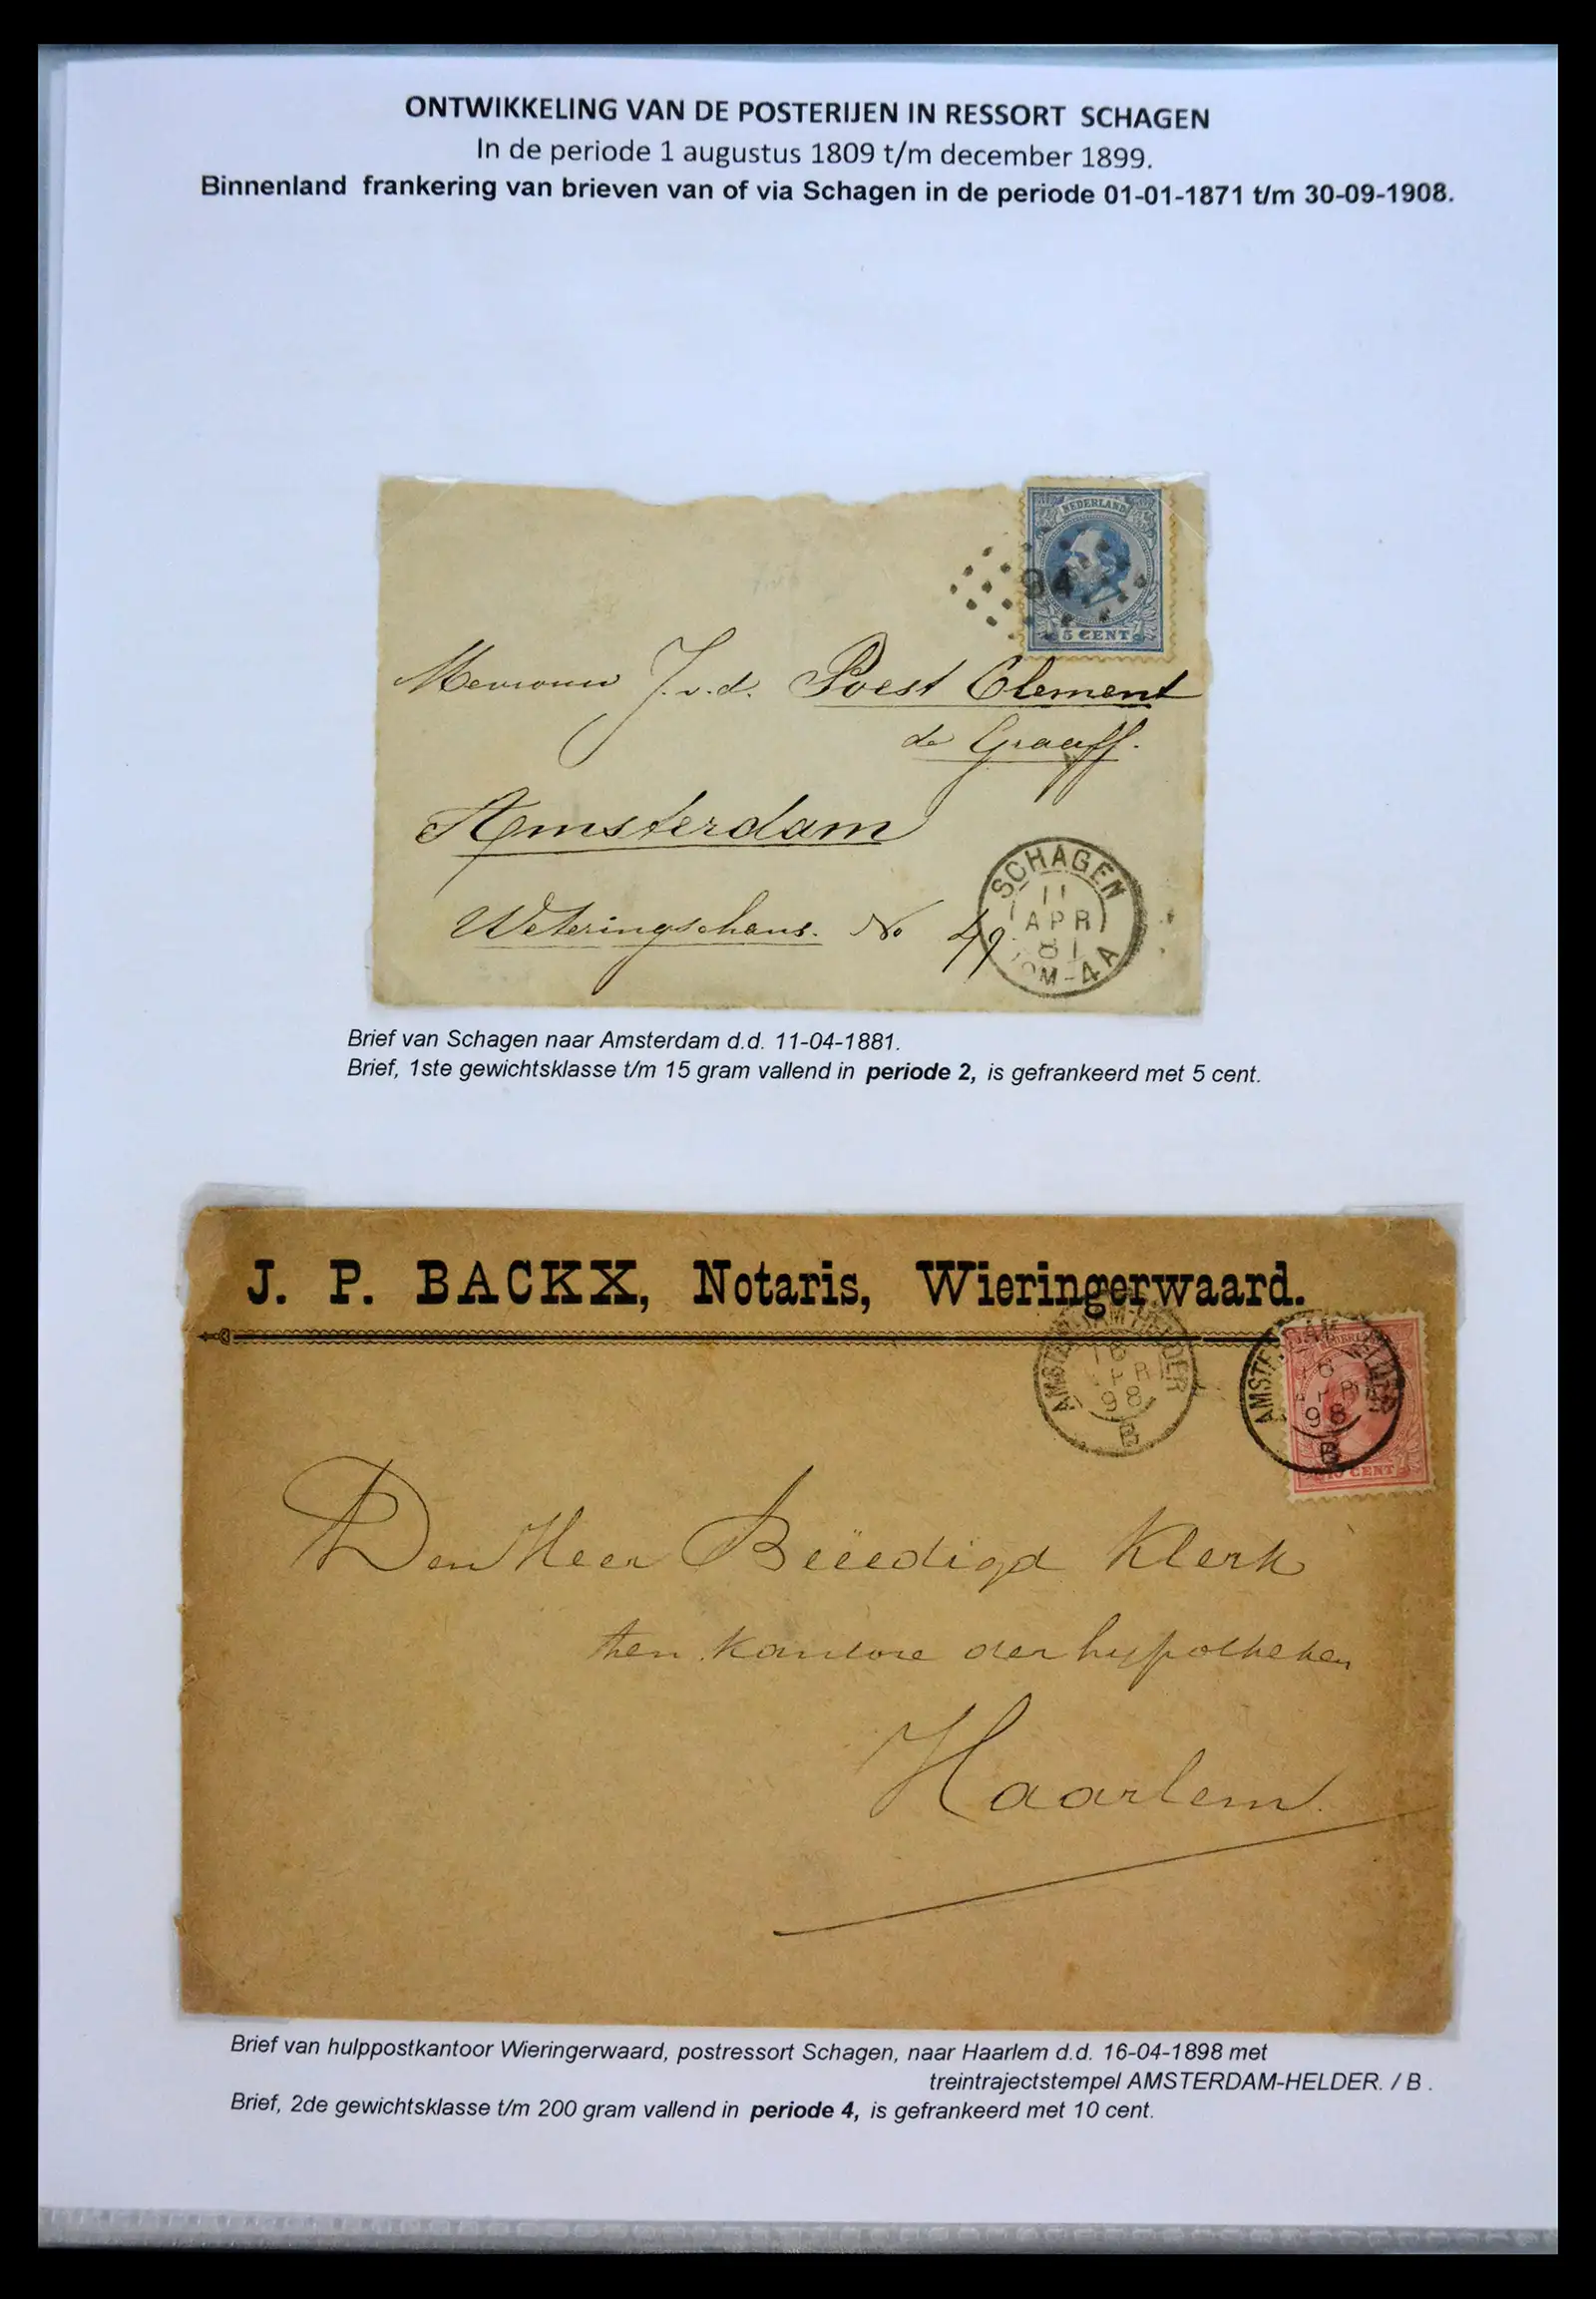 ONTWIKKELING VAN DE POSTERIJEN IN RESSORT SCHAGEN
In de periode 1 augustus 1809 t/m december 1899.
Binnenland frankering van brieven van of via Schagen in de periode 01-01-1871 t/m 30-09-1908.
NEDERLAND
94
5 CENT
Mevrouw J. v. d. Poest Clement
de Graaff.
Amsterdam
Weteringschans. No 49
SCHAGEN
11
APR
81
10M-4A
Brief van Schagen naar Amsterdam d.d. 11-04-1881.
Brief, 1ste gewichtsklasse t/m 15 gram vallend in periode 2, is gefrankeerd met 5 cent.
J. P. BACKX, Notaris, Wieringerwaard.
AMSTERDAM-HELDER
16
APR
98
B
AMSTERDAM-HELDER
16
APR
98
B
10 CENT
Den Heer Beëedigd Klerk
ten kantore der hypotheken
Haarlem.
Brief van hulppostkantoor Wieringerwaard, postressort Schagen, naar Haarlem d.d. 16-04-1898 met
treintrajectstempel AMSTERDAM-HELDER. / B .
Brief, 2de gewichtsklasse t/m 200 gram vallend in periode 4, is gefrankeerd met 10 cent.